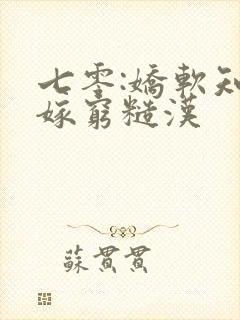 七零:嬌軟知
嫁窮糙漢
蘇貫貫